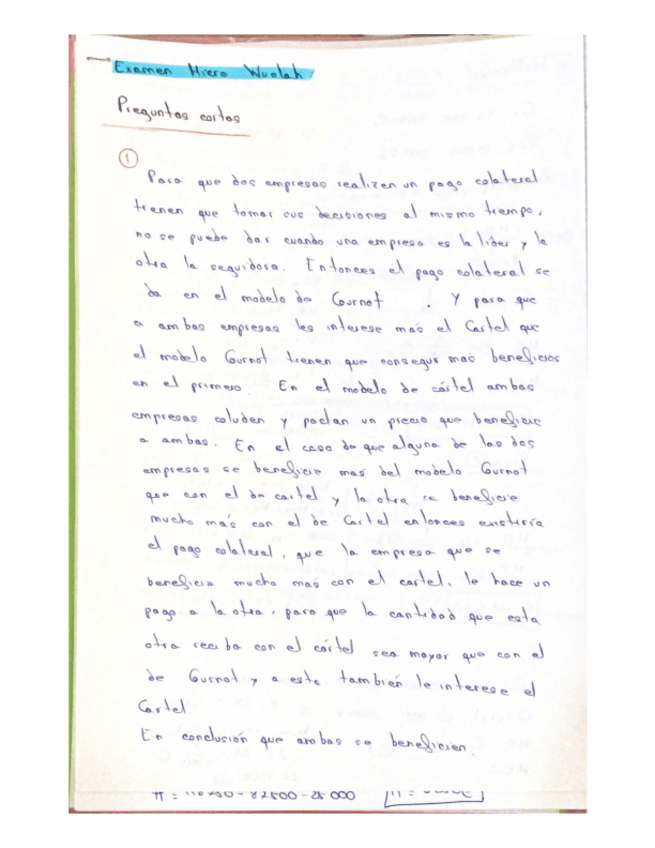 Examen Micro Wuolah
Preguntas cortas
1
Para que dos empresas realizen un pago colateral
tienen que tomar sus decisiones al mismo tiempo,
no se puede dar cuando una empresa es la lider y la
otra la seguidora. Entonces el pago colateral se
da en el modelo de Cournot . Y para que
a ambas empresas les interese más el Cartel que
el modelo Cournot tienen que conseguir mas beneficios
en el primero. En el modelo de cártel ambas
empresas coluden y pactan un precio que beneficie
a ambas. En el caso de que alguna de las dos
empresas se beneficie mas del modelo Cournot
que con el de cartel y la otra se beneficie
mucho más con el de Cartel entonces existiría
el pago colateral, que la empresa que se
beneficia mucho mas con el cartel, le hace un
pago a la otra, para que la cantidad que esta
otra reciba con el cártel sea mayor que con el
de Cournot y a esta también le interese el
Cartel
En conclusión que ambas se beneficien.